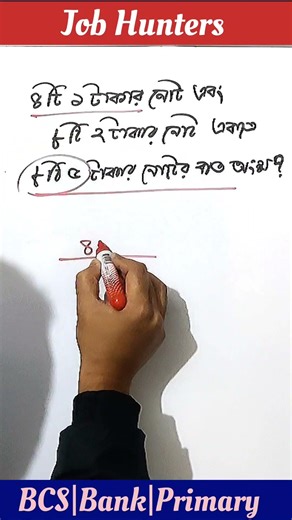 Job Hunters
৪টি ১ টাকার নোট এবং
৮টি ২ টাকার নোট একত্রে
৮টি ৫ টাকার নোটের কত অংশ?
8
BCS|Bank|Primary